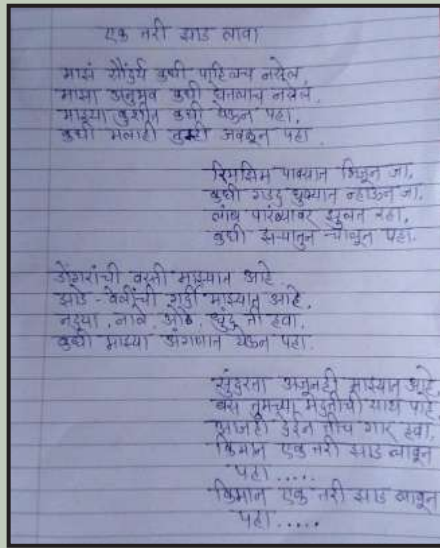 एक तरी झाड लावा
माझं सौंदर्य कधी पाहिलंच नसेल,
माझा अनुभव कधी घेतलाच नसेल,
माझ्या कुशीत कधी येऊन पहा,
कधी मलाही तुम्ही जवळून पहा.
रिमझिम पावसात भिजून जा,
कधी गडद धुक्यात न्हाऊन जा,
लांब पारंब्यावर झुलत रहा,
कधी झऱ्यातुन चालून पहा.
डोंगरांची वस्ती माझ्यात आहे
झाडे-वेलींची गर्दी माझ्यात आहे,
नद्या, नाले, ओढे, धुंद ती हवा,
कधी माझ्या अंगणात येऊन पहा.
सुंदरता अजूनही माझ्यात आहे,
बस तुमच्या मदतीची वाट पाहे,
आजही देईन तीच गार हवा,
किमान एक तरी झाड लावून
पहा.....
किमान एक तरी झाड लावून
पहा.....